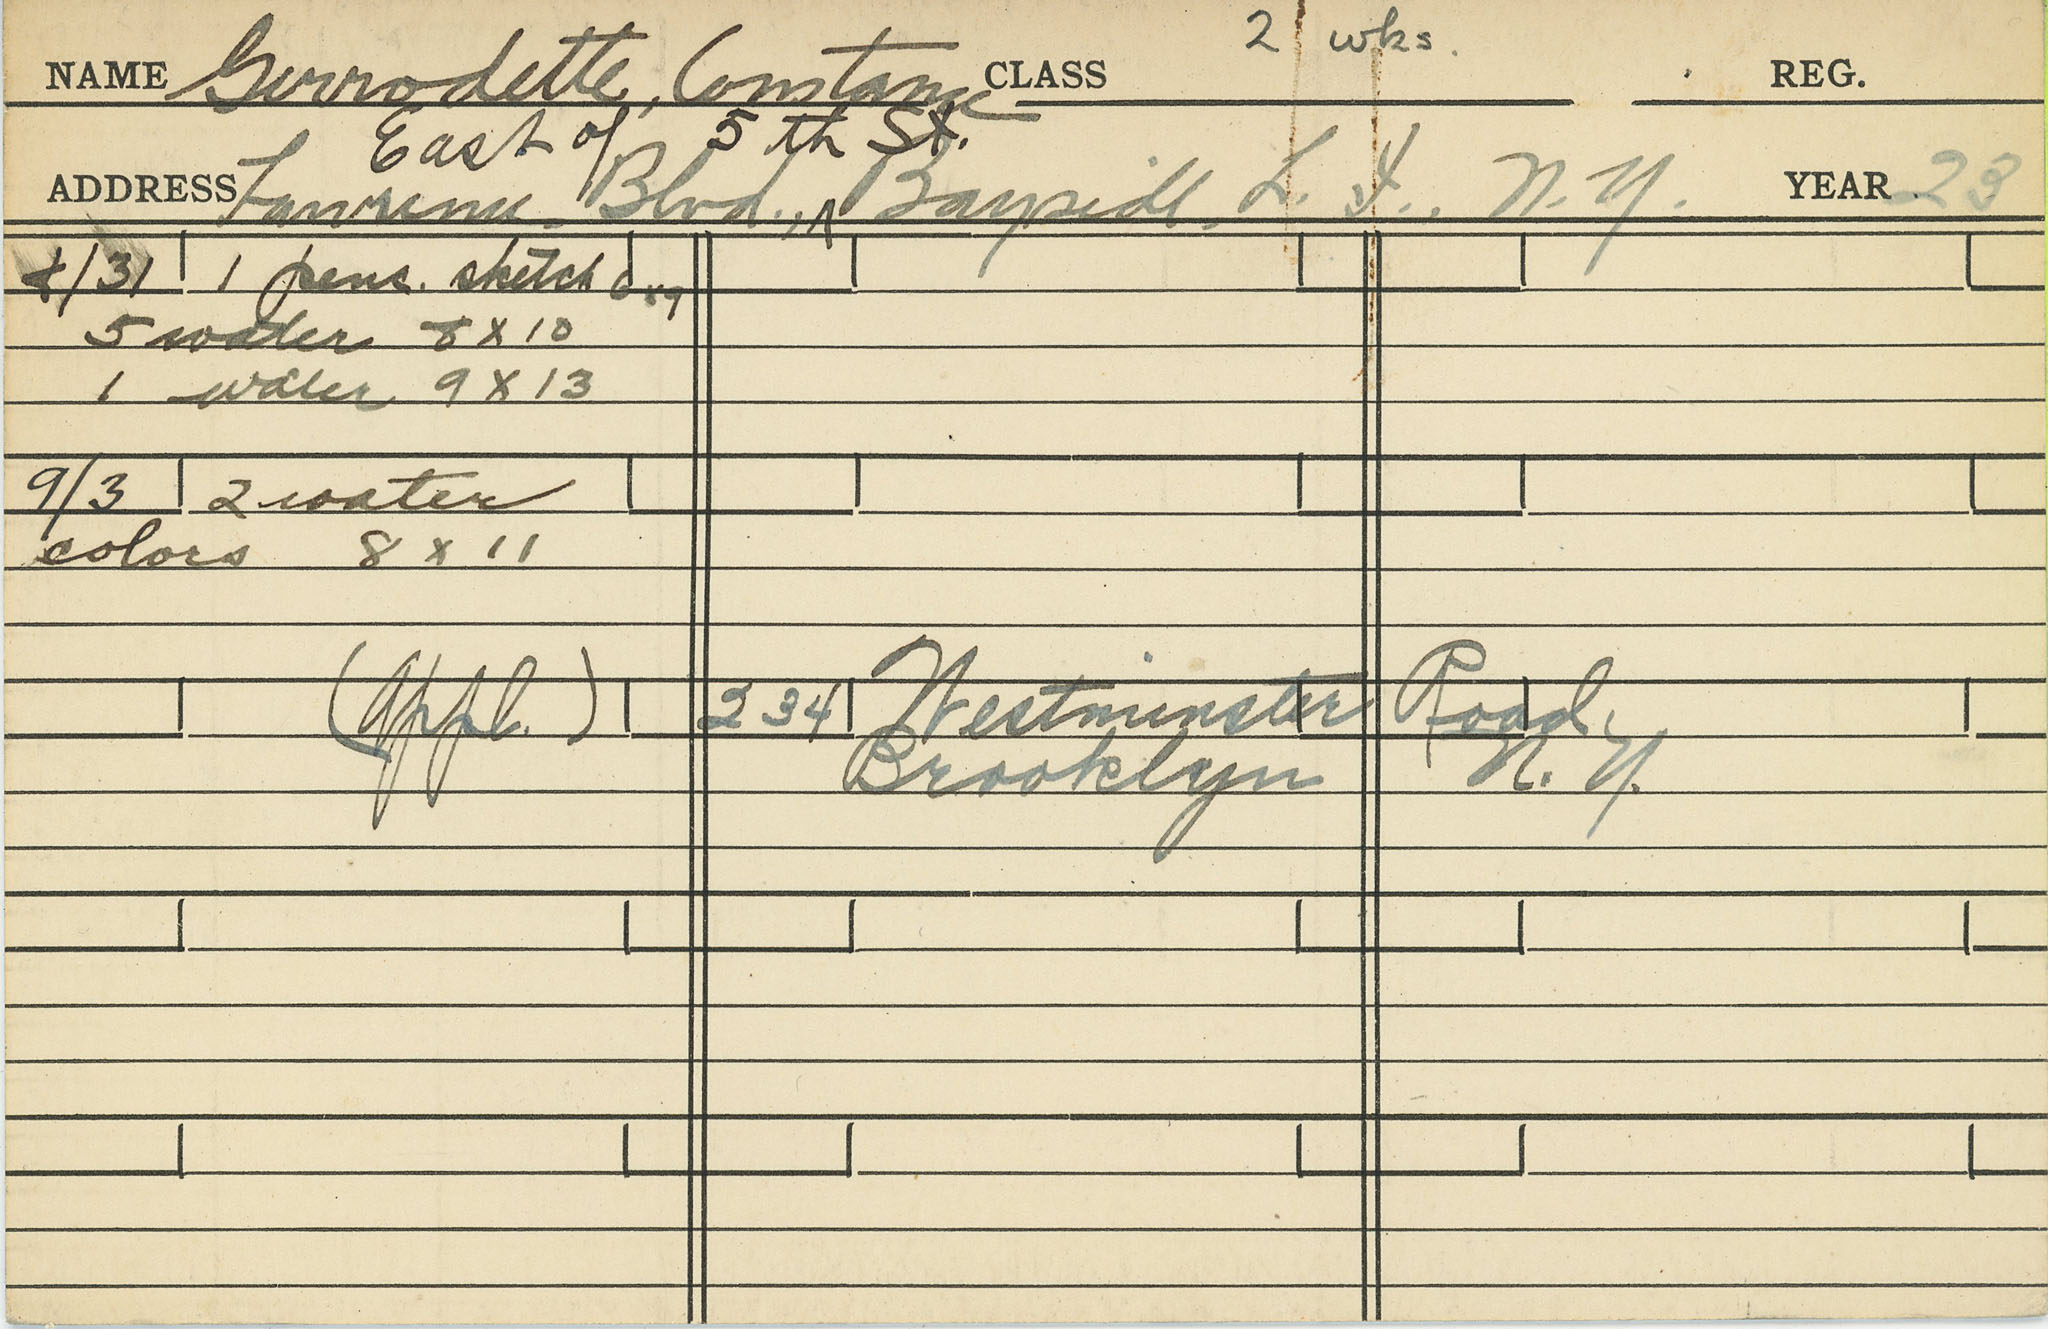 2 wks.
NAME Gerrodette, Constance CLASS REG.
East of 5th St.
ADDRESS Lawrence Blvd., ^ Bayside, L. I., N. Y. YEAR 23
8/31 1 penc. sketch 6x9
5 water 8 x 10
1 water 9 x 13
9/3 2 water
colors 8 x 11
(Appl.) 234 Westminster Road,
Brooklyn N. Y.